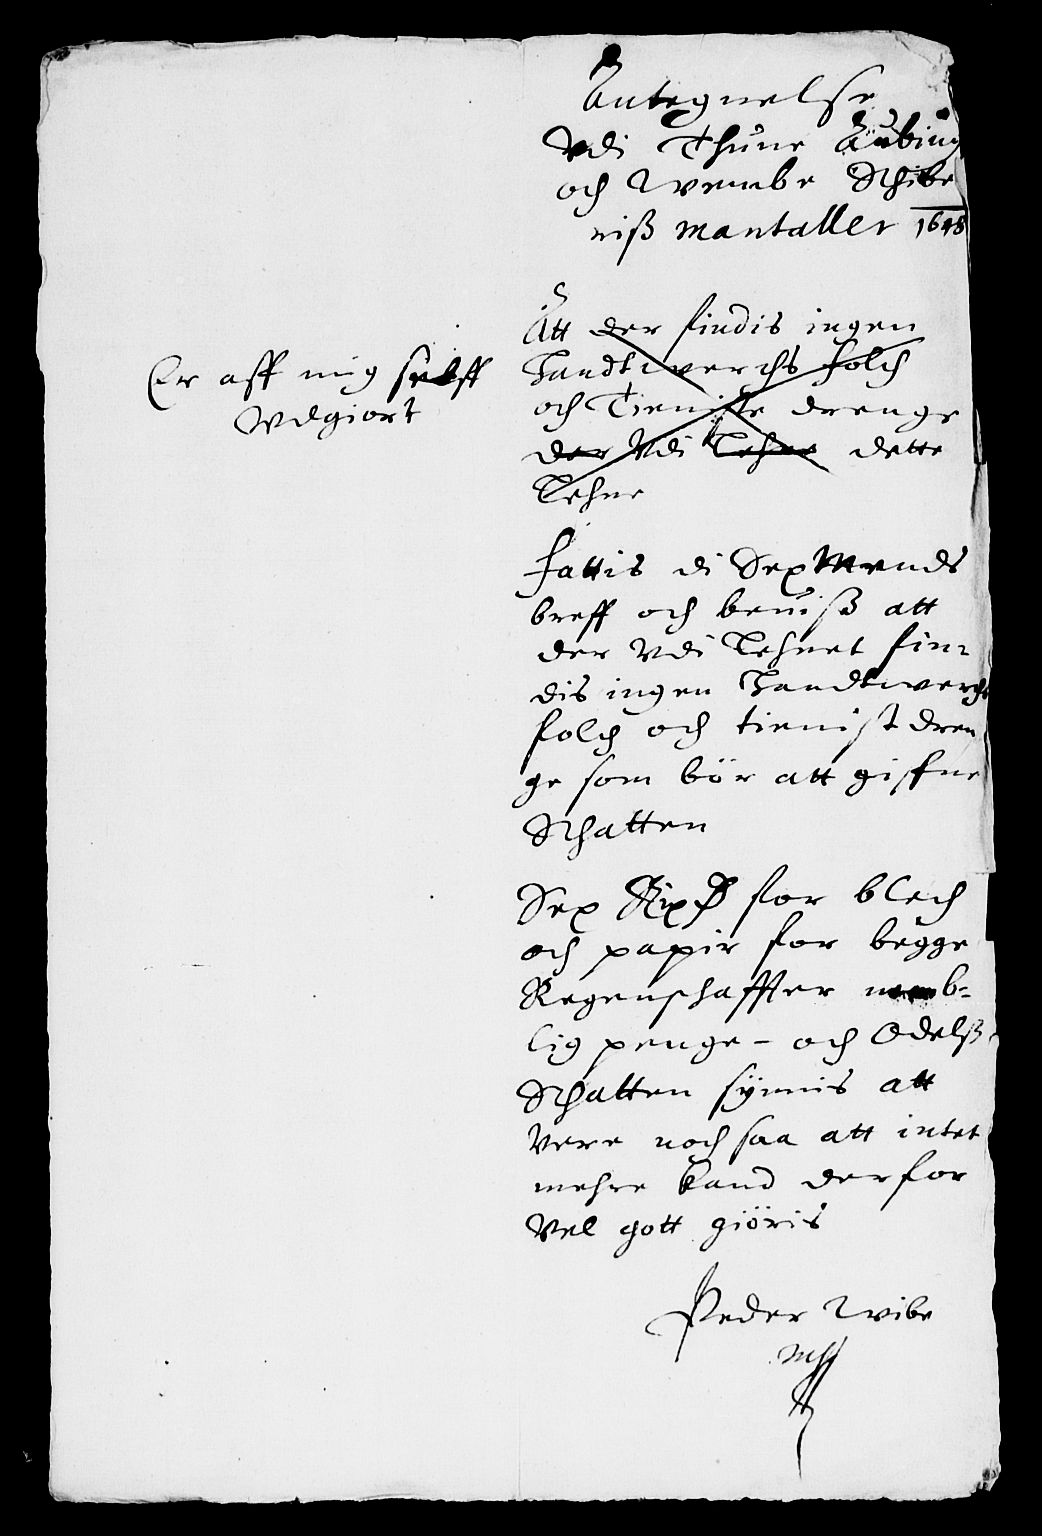 Antegnelse
Vdi Thune Aubiug
och Wembe Schibe
riß mantaller 1648
Att der findis ingen
Handtwerchs folch
och Tieniste drenge
der Vdi Lehne dette
Lehne
Er aff mig selff
Vdgiort
fattis di Sex Mends
breff och beuiß att
der Vdi Lehnet fin-
dis ingen Handtwerchs
folch och tienist dren
ge som bör att giffue
Schatten
Sex Rixd for blech
och papir for begge
Regenschaffter nemb-
lig penge- och Odelß
Schatten synnis att
Vere noch saa att intet
mehre kand derfor
Vel gott giöris
Peder Wibe